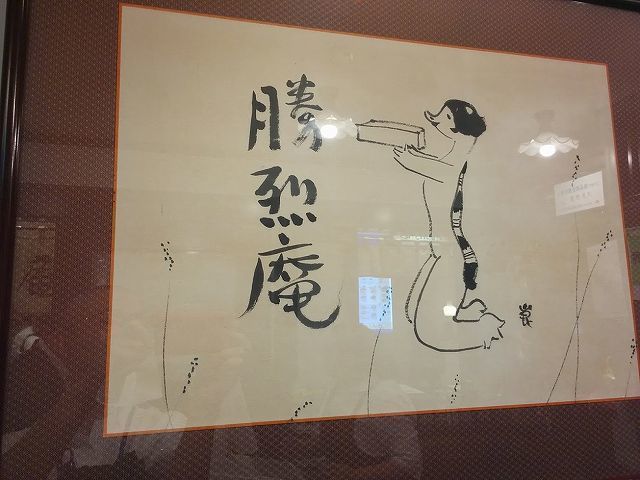 勝
烈
庵